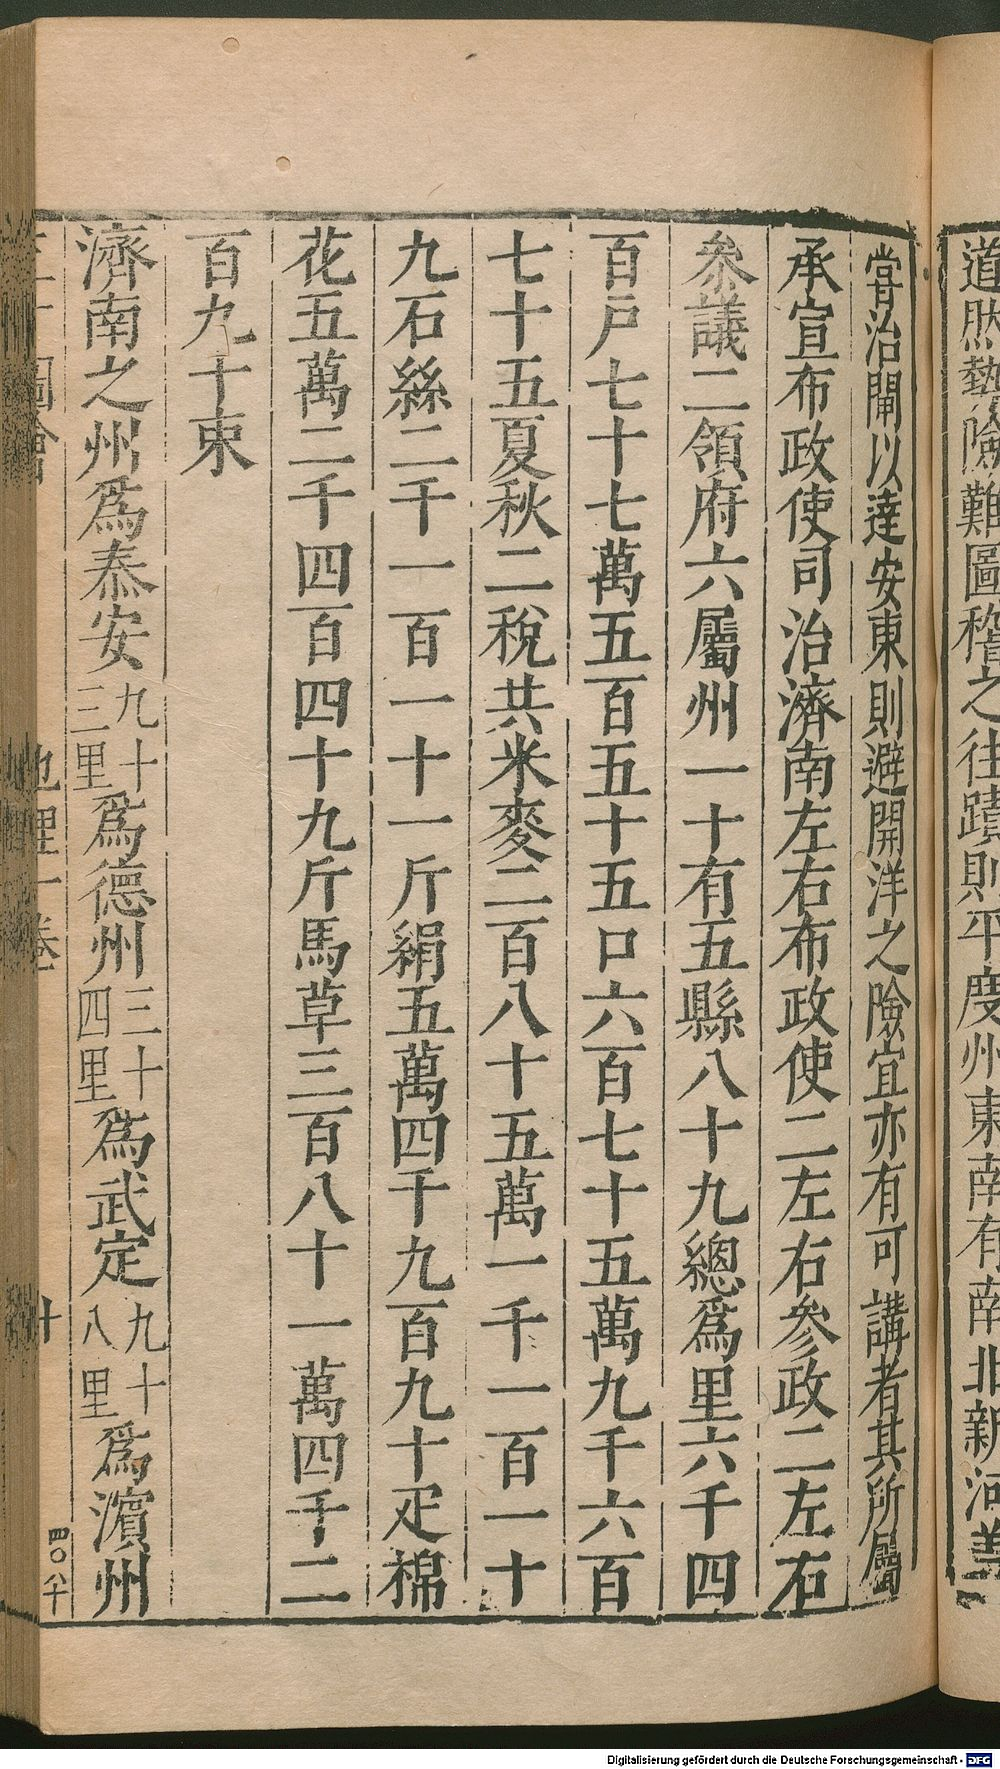 道然勢險難圖稽之往蹟則平度州東南有南北新河蓋
嘗治閘以達安東則避開洋之險宜亦有可講者其所屬
承宣布政使司治濟南左右布政使二左右參政二左右
叅議二領府六屬州一十有五縣八十九總爲里六千四
百戶七十七萬五百五十五口六百七十五萬九千六百
七十五夏秋二稅共米麥二百八十五萬一千一百一十
九石絲二千一百一十一斤絹五萬四千九百九十疋棉
花五萬二千四百四十九斤馬草三百八十一萬四千二
百九十束
濟南之州爲泰安九十三里爲德州三十四里爲武定九十八里爲濵州
三才圖會 地理一卷 十 四〇八十
Digitalisierung gefördert durch die Deutsche Forschungsgemeinschaft - DFG